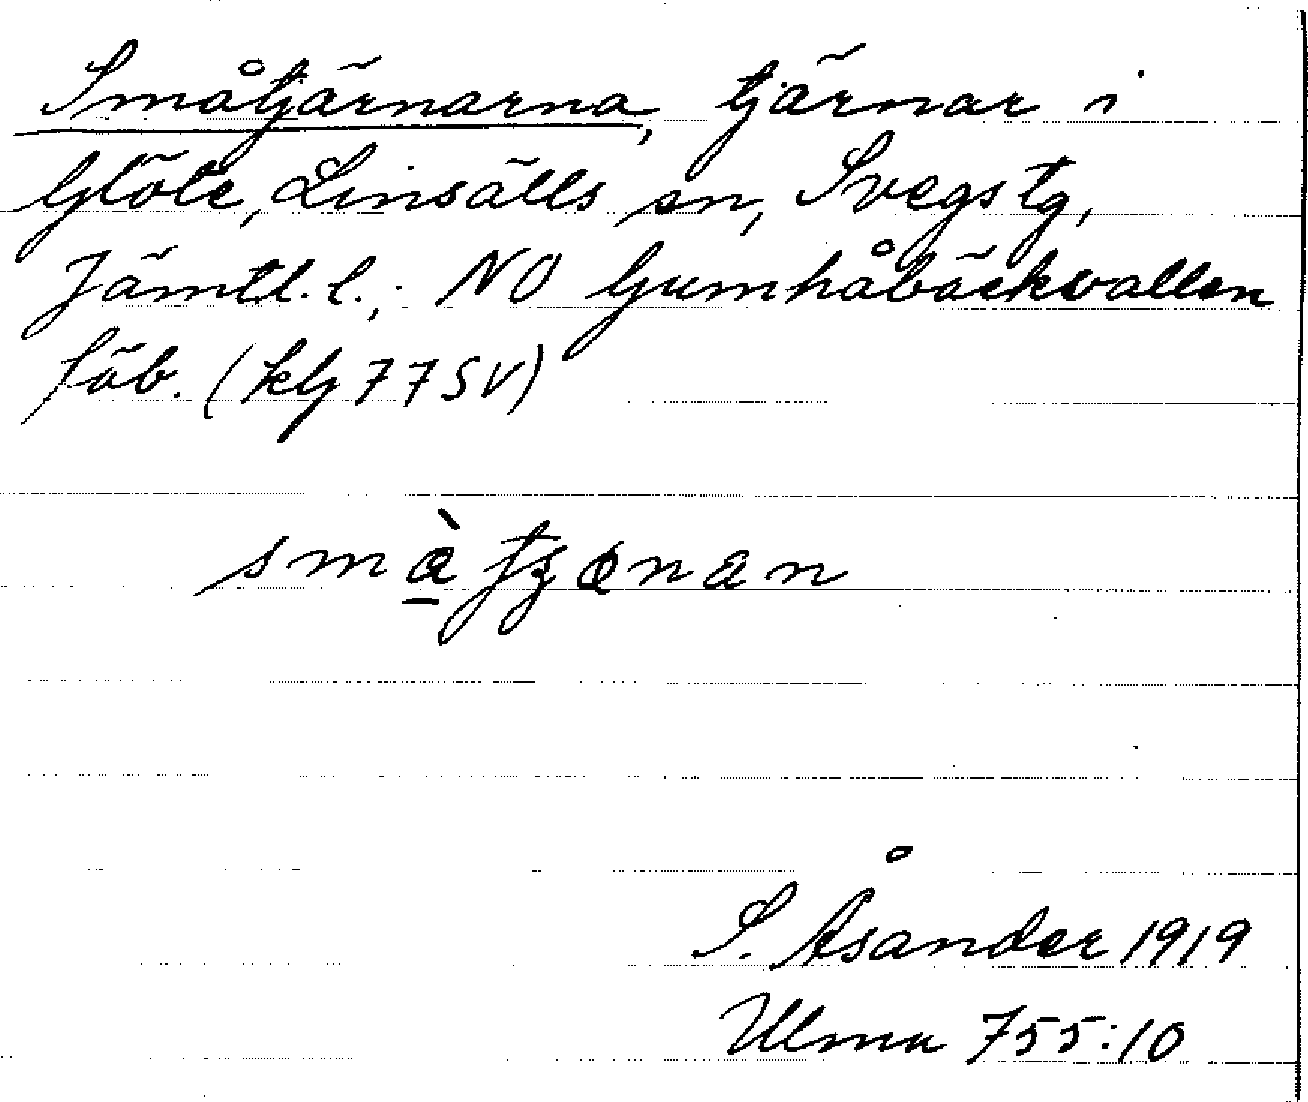 Småtjärnarna, tjärnar i
Glöte, Linsälls sn, Svegs tg,
Jämtl. l.; NO Gumhåbäckvallen
fäb. (kbl 77 SV)
S. Åsander 1919
Ulma 755:10